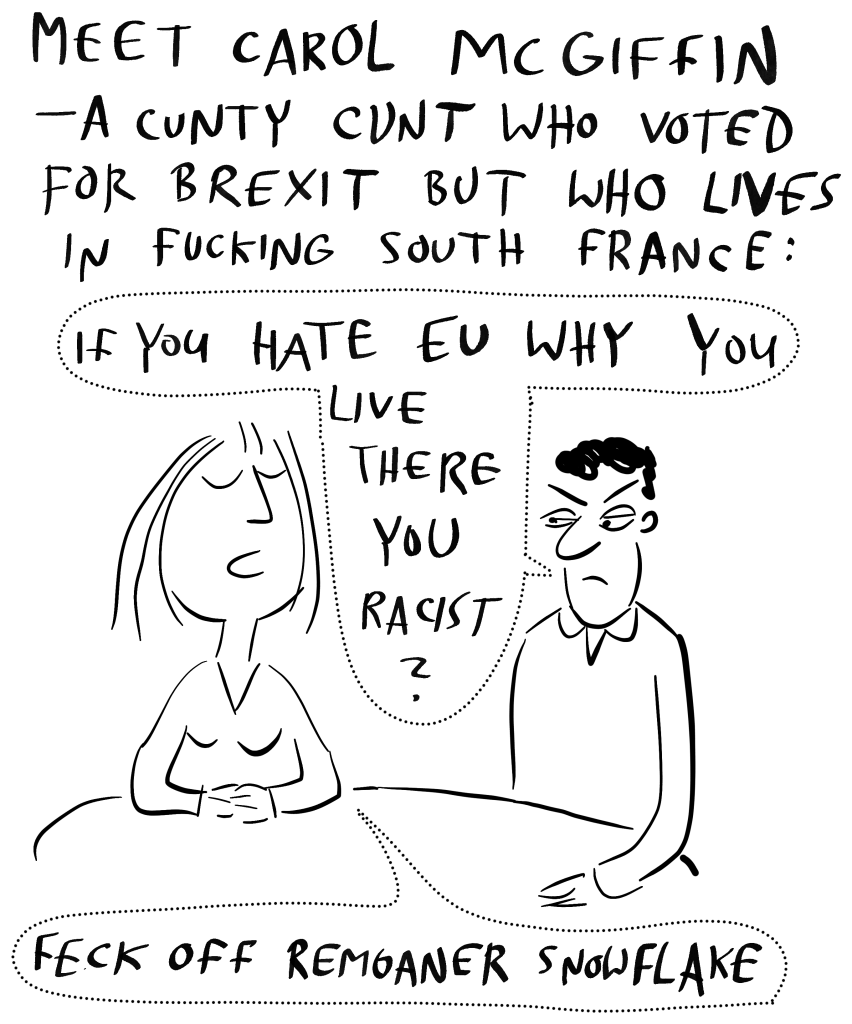 MEET CAROL MCGIFFIN
—A CUNTY CUNT WHO VOTED
FOR BREXIT BUT WHO LIVES
IN FUCKING SOUTH FRANCE:
IF YOU HATE EU WHY YOU
LIVE
THERE
YOU
RACIST
?
FECK OFF REMOANER SNOWFLAKE